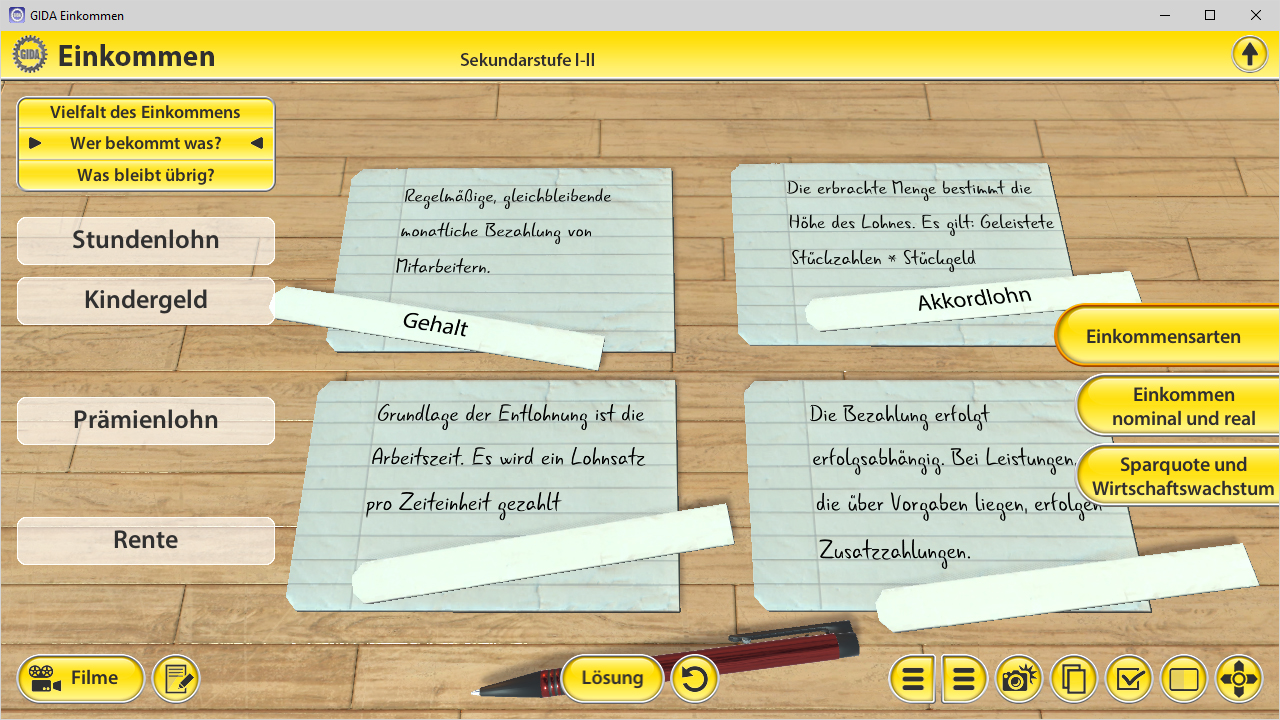 GIDA Einkommen
GIDA
Einkommen
Sekundarstufe I-II
Vielfalt des Einkommens
Wer bekommt was?
Was bleibt übrig?
Stundenlohn
Kindergeld
Prämienlohn
Rente
Regelmäßige, gleichbleibende
monatliche Bezahlung von
Mitarbeitern.
Gehalt
Die erbrachte Menge bestimmt die
Höhe des Lohnes. Es gilt: Geleistete
Stückzahlen * Stückgeld
Akkordlohn
Grundlage der Entlohnung ist die
Arbeitszeit. Es wird ein Lohnsatz
pro Zeiteinheit gezahlt
Die Bezahlung erfolgt
erfolgsabhängig. Bei Leistungen,
die über Vorgaben liegen, erfolgen
Zusatzzahlungen.
Einkommensarten
Einkommen
nominal und real
Sparquote und
Wirtschaftswachstum
Filme
Lösung